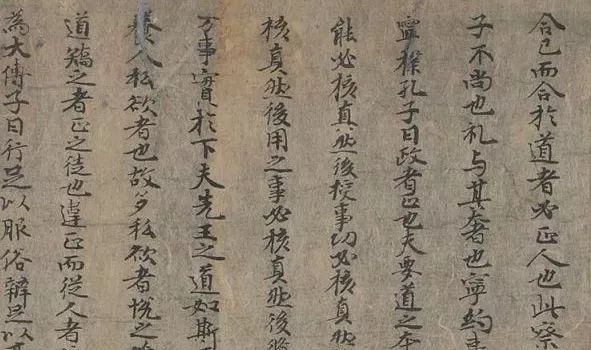 合己而合於道者必正人也此察
子不尚也礼与其奢也寧約事
寧樸孔子曰政者正也夫要道之本
能必核真然後授事功必核真然
核真然後用之事必核真然後
万事實於下夫先王之道如斯
人私欲者也故多私欲者悦之
道矯之者正之徒也違正而従人者
為大傅子曰行足以服俗辨足以